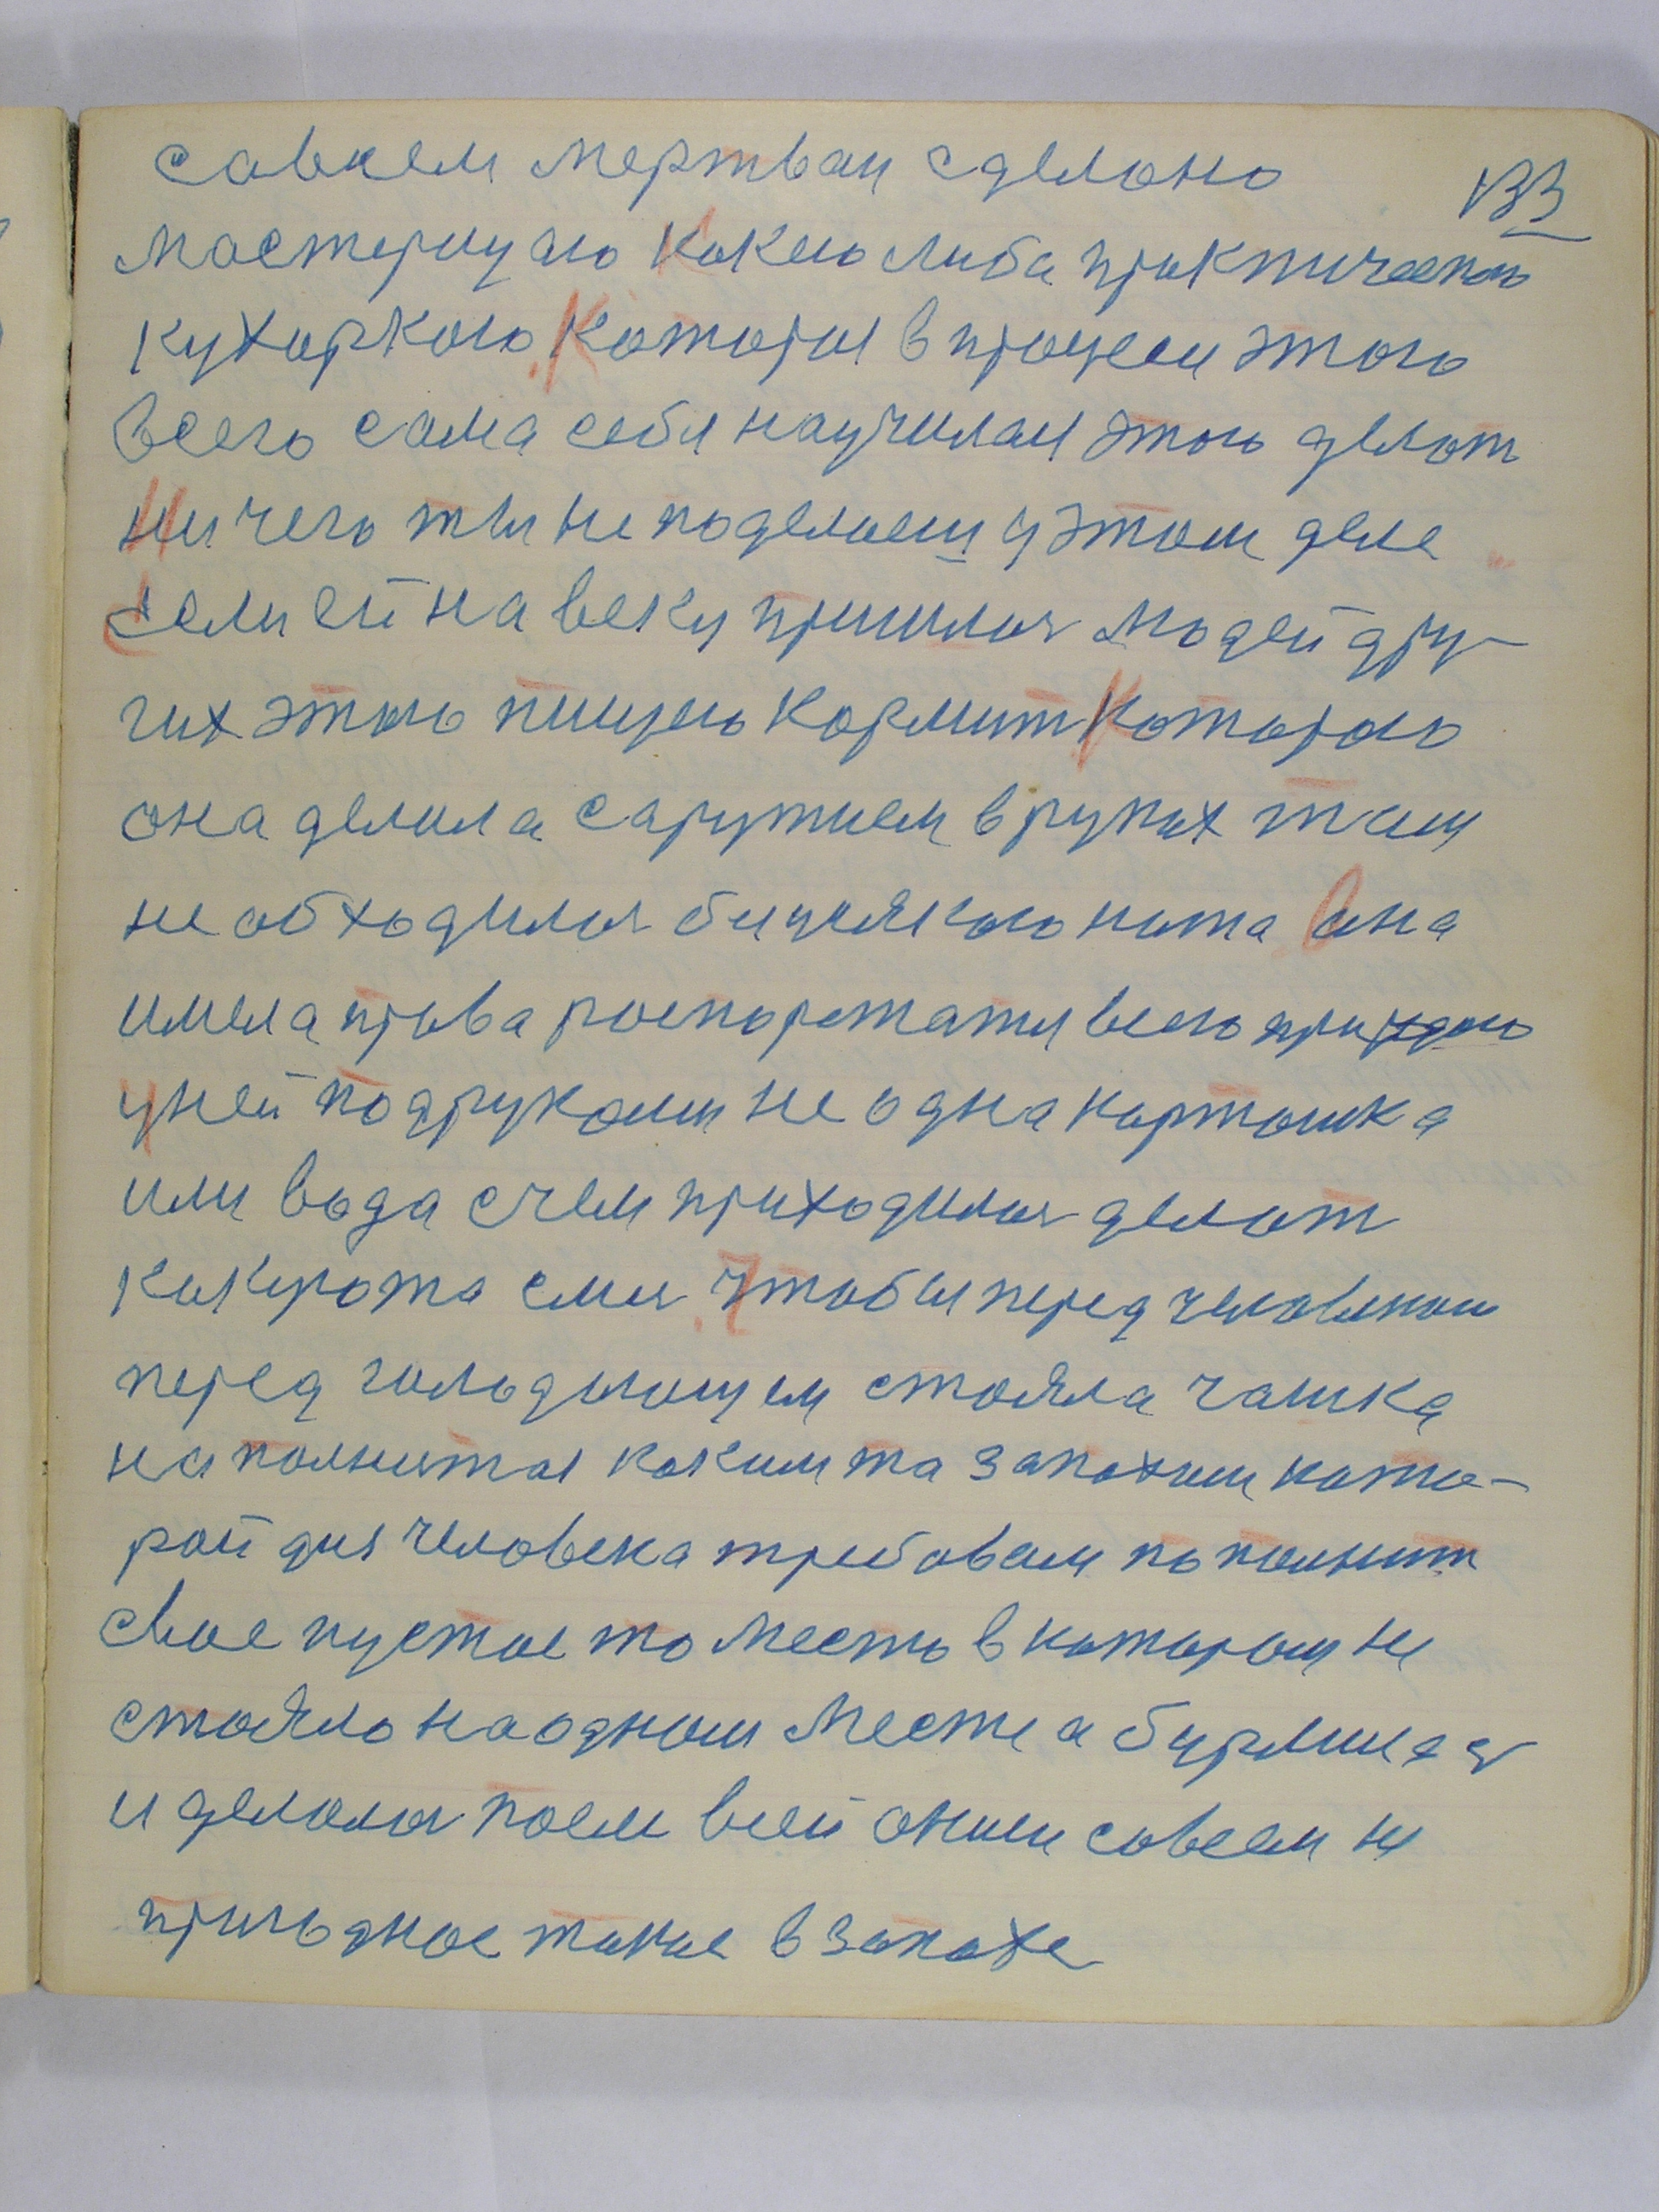 133
совсем мертвам сделоно
мостерицою какою либа практическою
кухоркою. Которая в процеси этого
всего сама себя научилася этого делот
Ничего ты не поделаеш у этом деле
Если ей на веку пришлося людей дру-
гих этою пищею кормит Которою
она делила саружием в руках там
не обходилося биз
имела права роспоряжатся всего природою
у ней под рукоми не одна картошка
или вода с чем приходилося делот
какуюто смис. Чтобы перед человеком
перед голодающем стояла чашка
наполнитоя какимта запахам кото-
рай для человека требовал пополнит
свое пустое то место в котором не
стояло на одном месте а бурлило
и делолося после всей они совсем не
пригодное такое в запахе